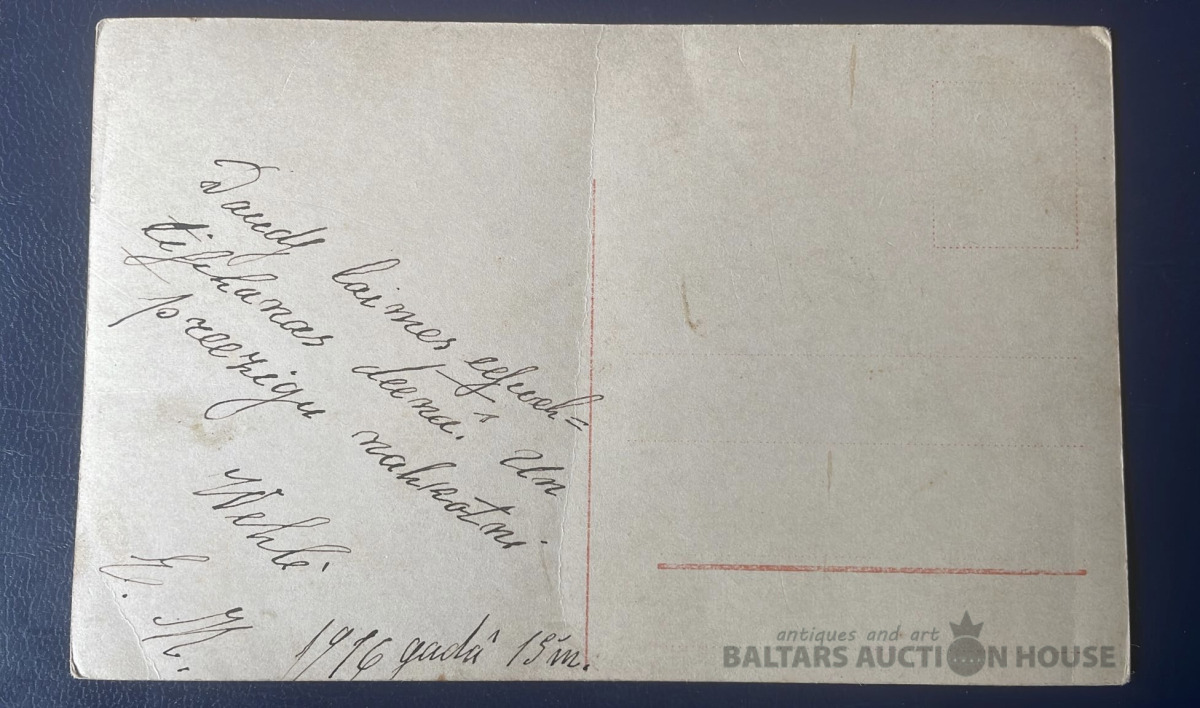 Daudz laimes eesweh=
tischanas deenā! Un
preezigu nahkotni
Wehlē.
E. M.
1916 gadâ 15 m.
antiques and art
BALTARS AUCTION HOUSE